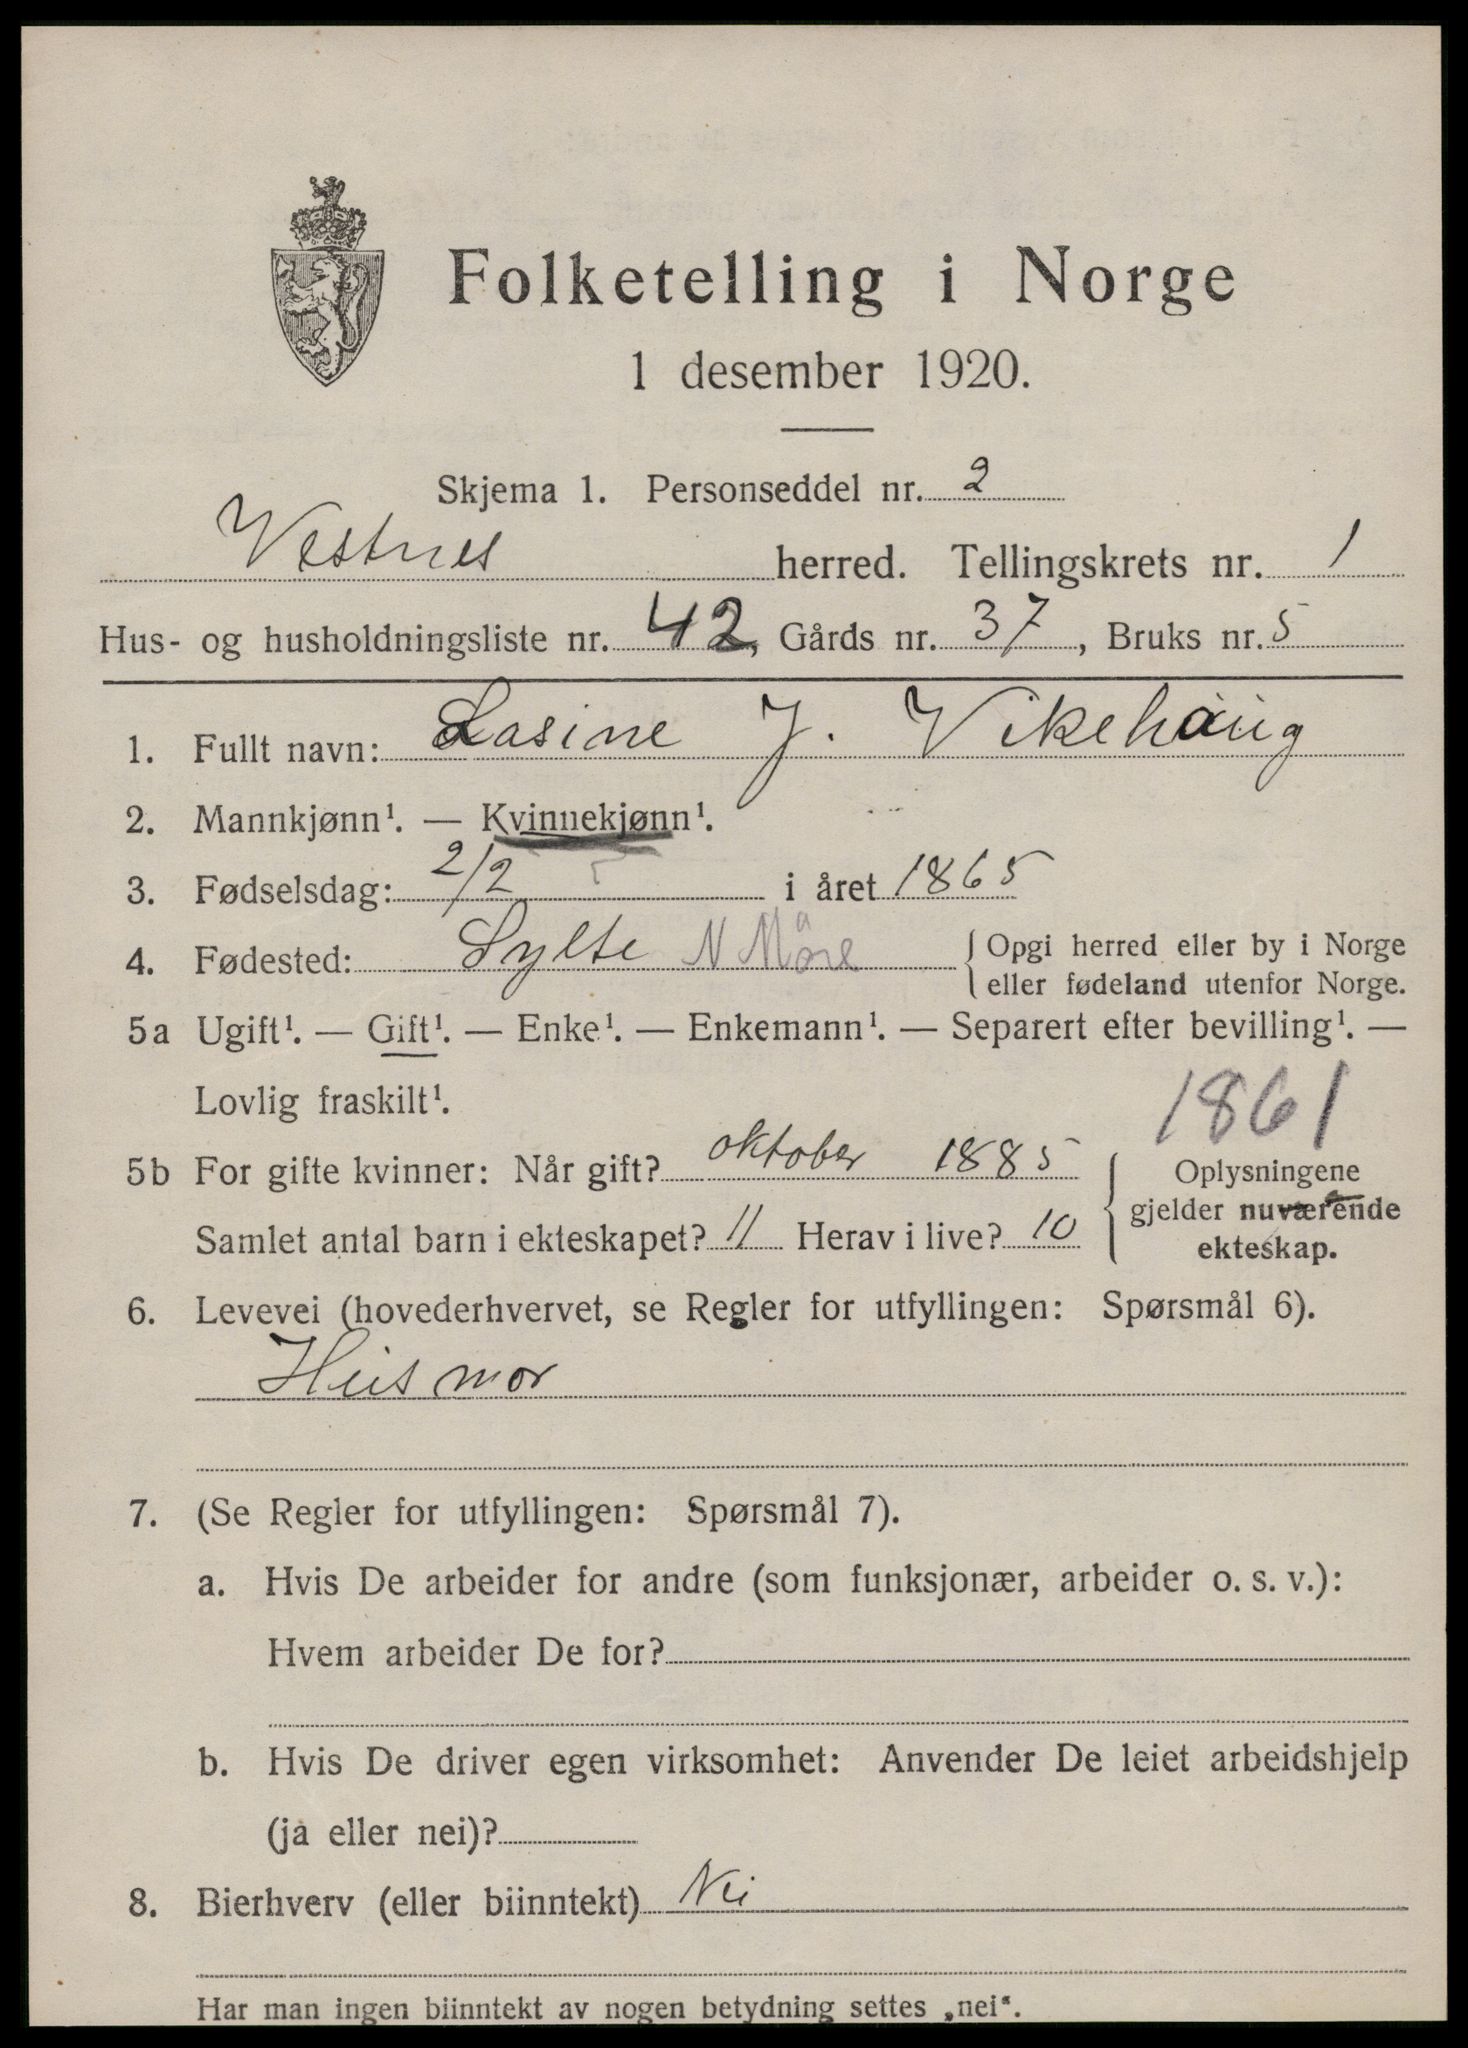 Folketelling i Norge
1 desember 1920.
Skjema 1. Personseddel nr. 2
Vestnes herred. Tellingskrets nr. 1
Hus- og husholdningsliste nr. 42, Gårds nr. 37, Bruks nr. 5
1. Fullt navn: Lasine J. Vikehaug
2. Mannkjønn¹. — Kvinnekjønn¹.
3. Fødselsdag: 2/2 i året 1865
4. Fødested: Sylte N Möre { Opgi herred eller by i Norge
eller fødeland utenfor Norge.
5a Ugift¹. — Gift¹. — Enke¹. — Enkemann¹. — Separert efter bevilling¹. —
Lovlig fraskilt¹.
1861
5b For gifte kvinner: Når gift? oktober 1885
Samlet antal barn i ekteskapet? 11 Herav i live? 10
Oplysningene
gjelder nuværende
ekteskap.
6. Levevei (hovederhvervet, se Regler for utfyllingen: Spørsmål 6).
Husmor
7. (Se Regler for utfyllingen: Spørsmål 7).
a. Hvis De arbeider for andre (som funksjonær, arbeider o. s. v.):
Hvem arbeider De for?
b. Hvis De driver egen virksomhet: Anvender De leiet arbeidshjelp
(ja eller nei)?
8. Bierhverv (eller biinntekt) Nei
Har man ingen biinntekt av nogen betydning settes „nei“.